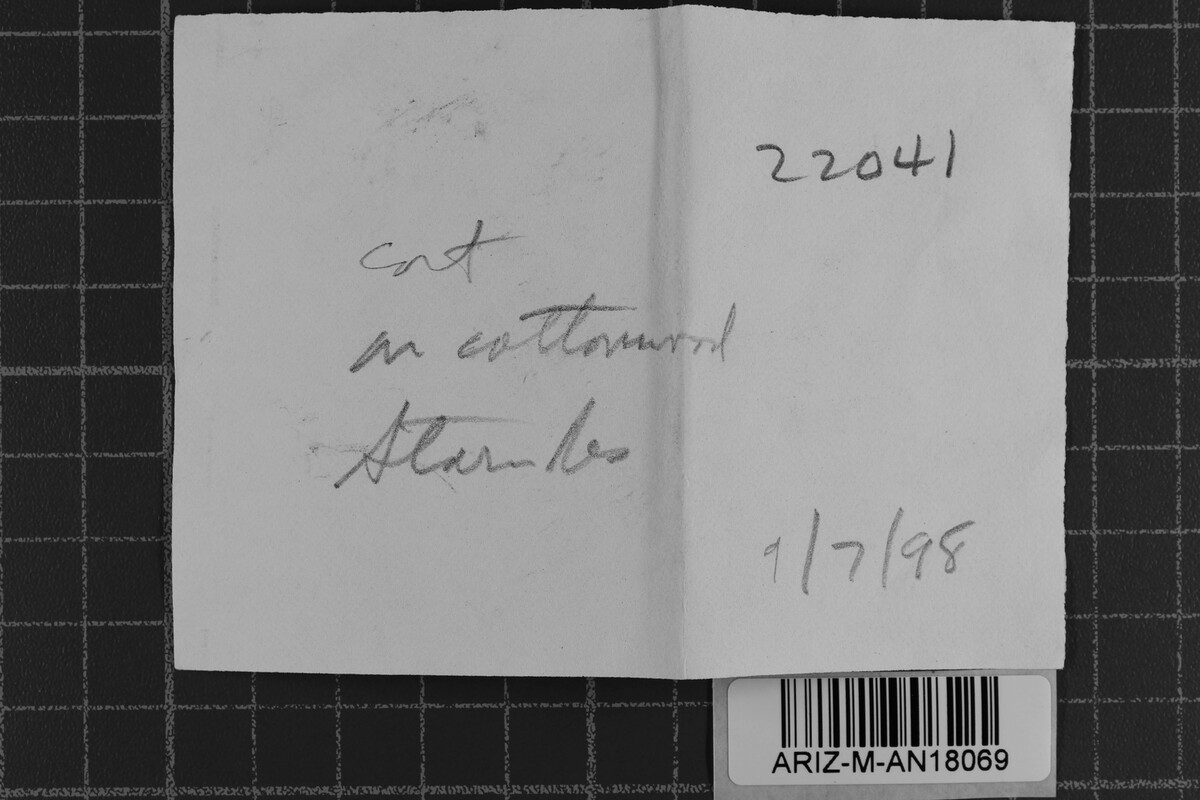 22041
cort
on cottonwood
9/7/98
ARIZ-M-AN18069